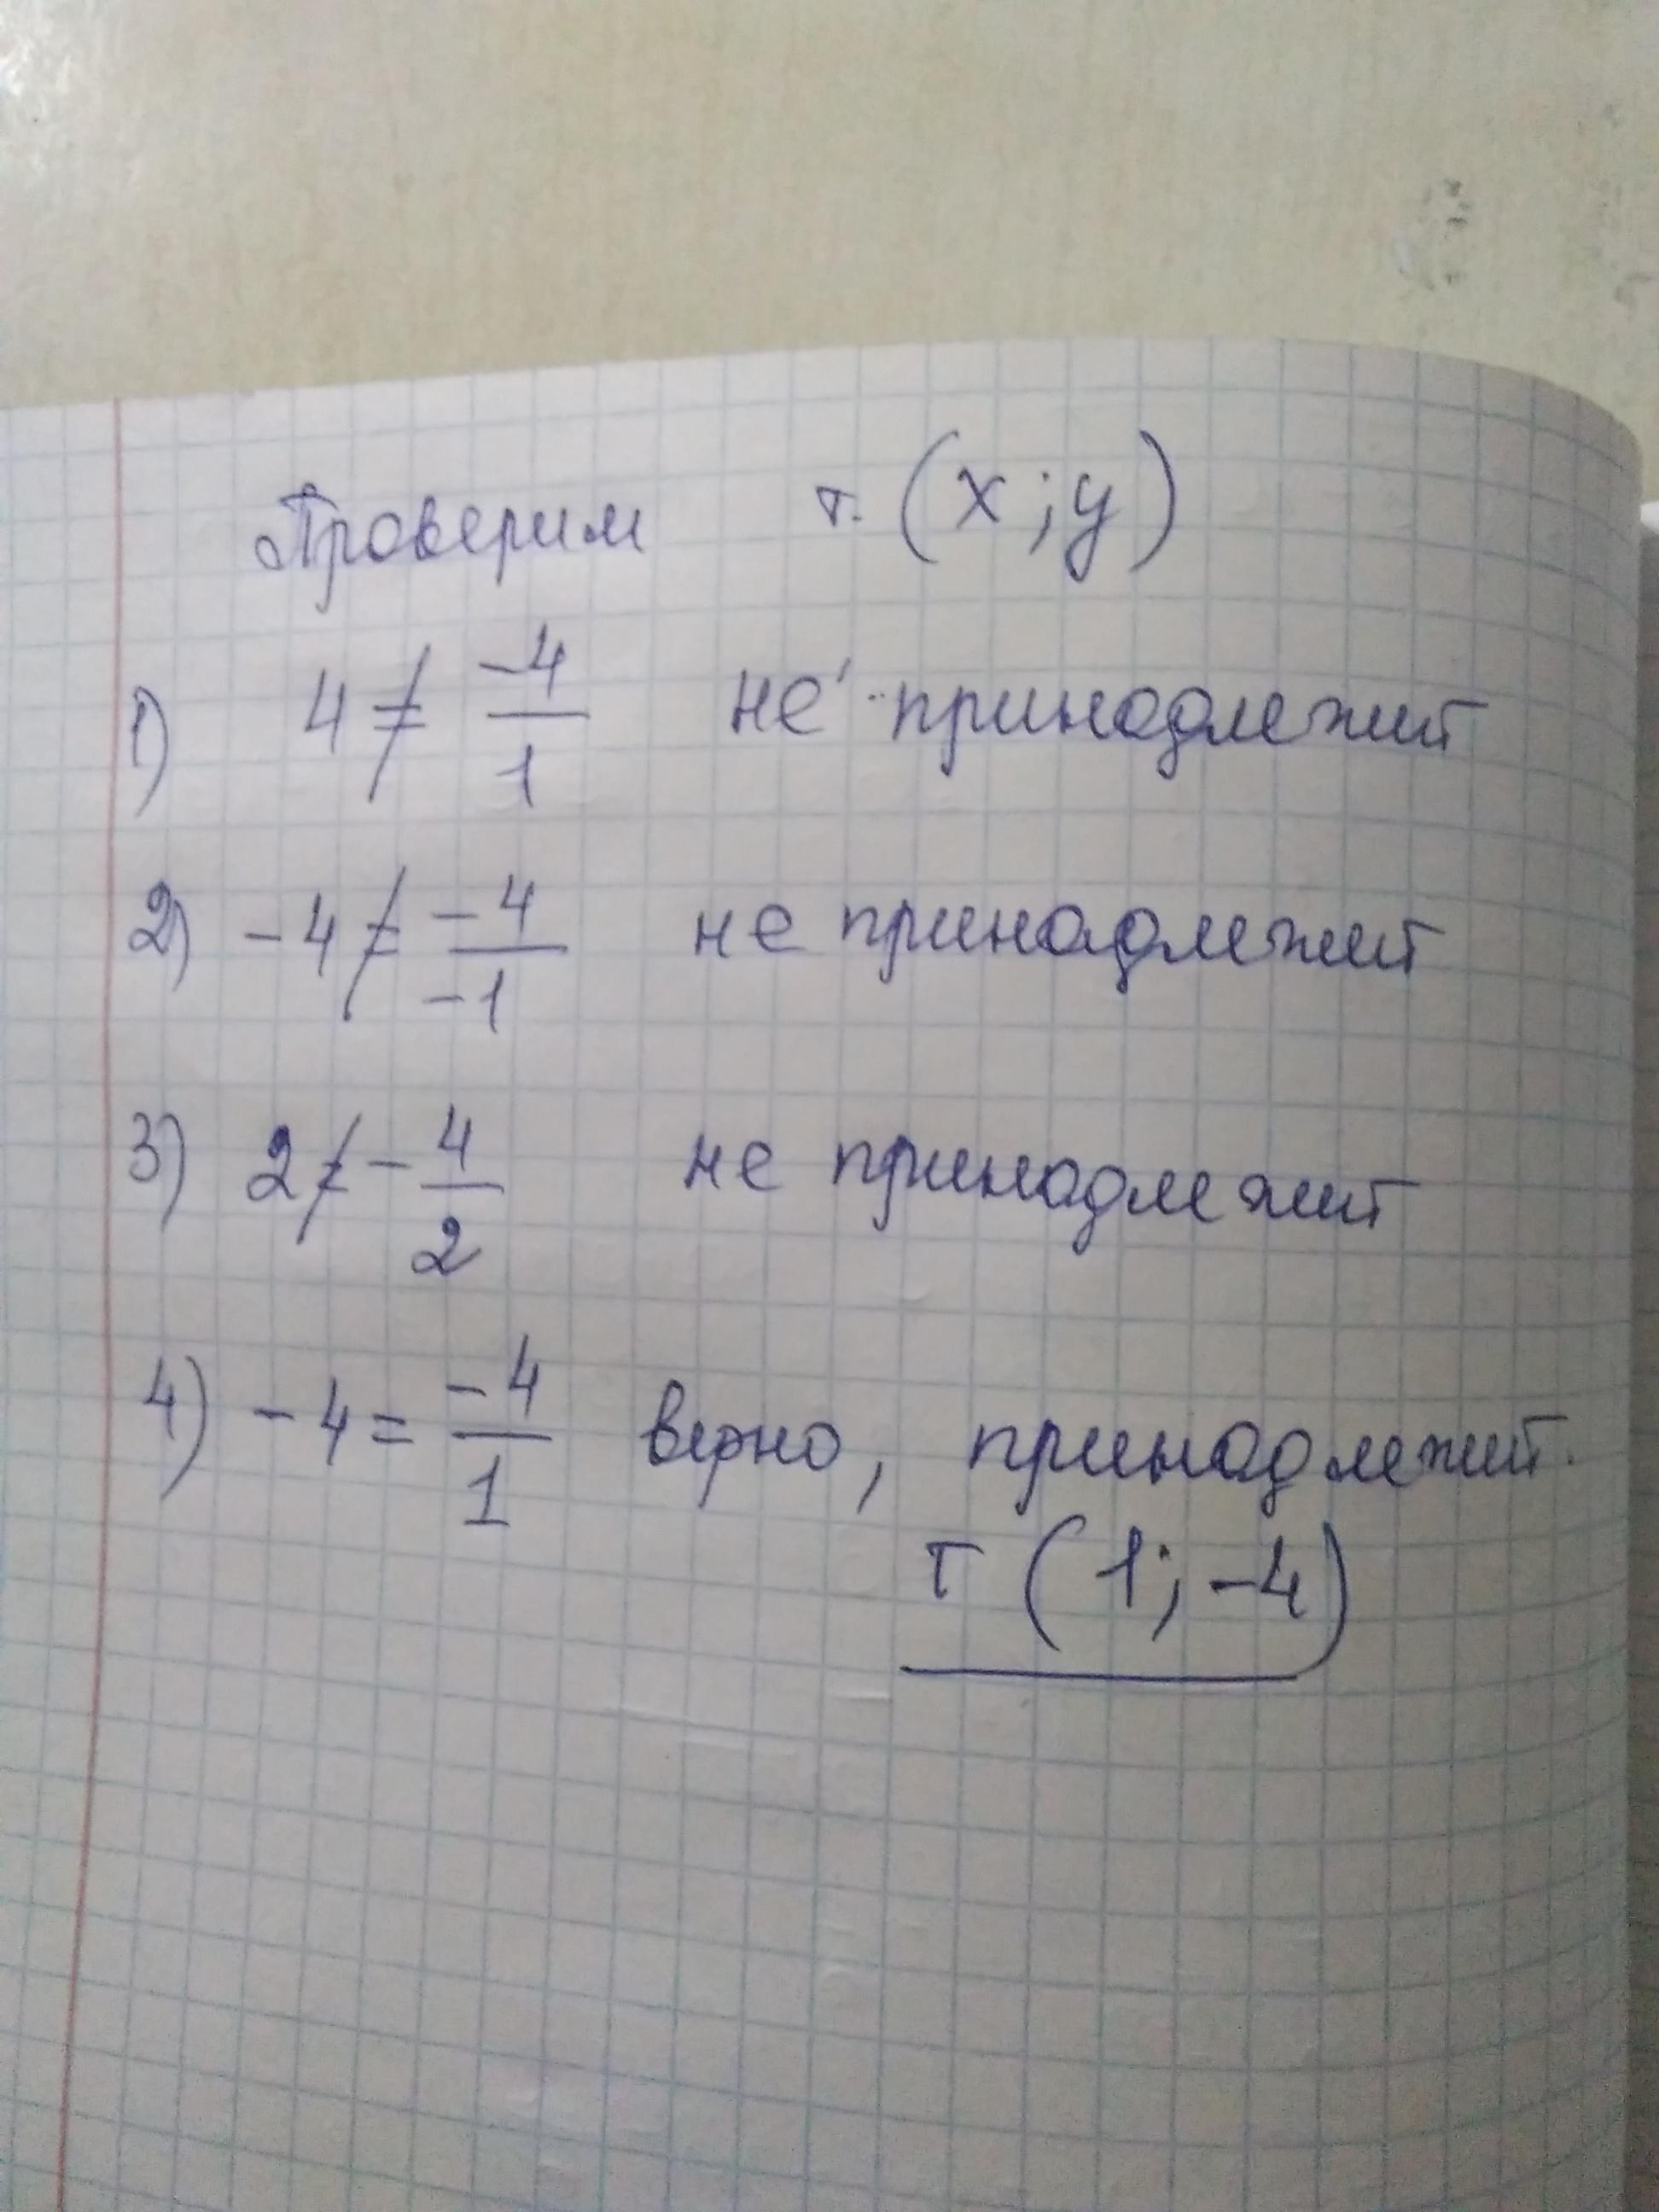 Проверим т. (x;y)
1) 4 ≠ -4/1 не принадлежит
2) -4 ≠ -4/-1 не принадлежит
3) 2 ≠ - 4/2 не принадлежит
4) -4 = -4/1 верно, принадлежит.
т (1; -4)